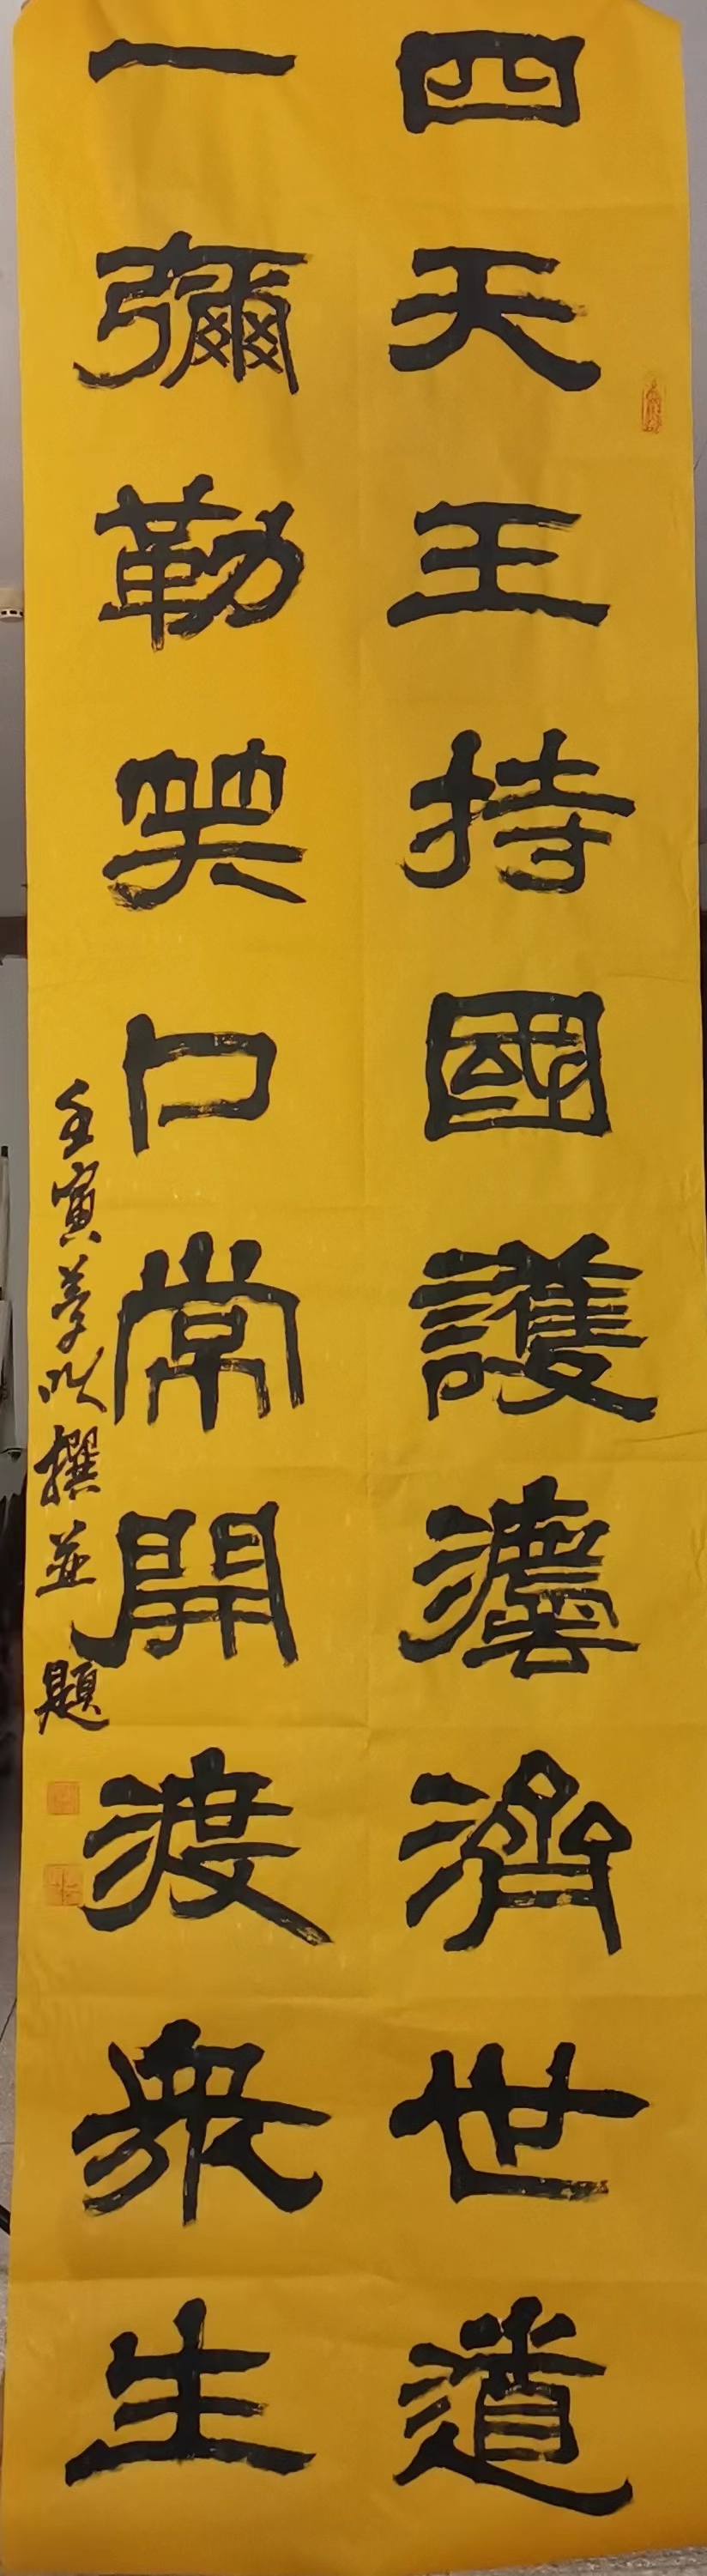 四天王持國護灋濟世道
一彌勒笑口常開渡眾生
壬寅撰並題